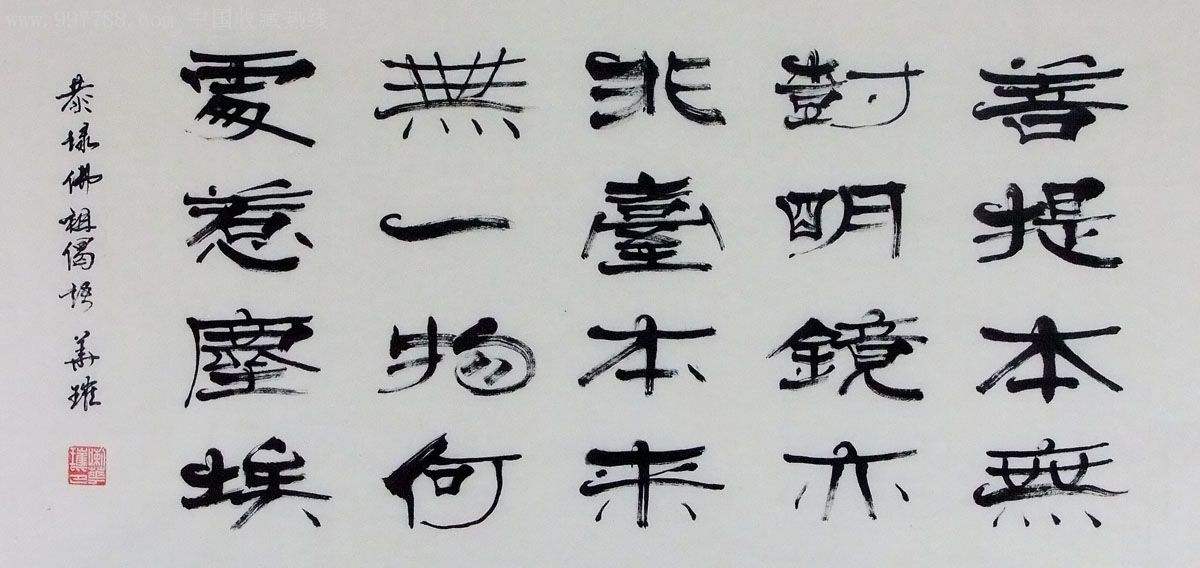 www.997788.com 中国收藏热线
菩提本無
尌明鏡亦
非臺本來
無一物何
處惹塵埃
恭録佛祖偈語 華